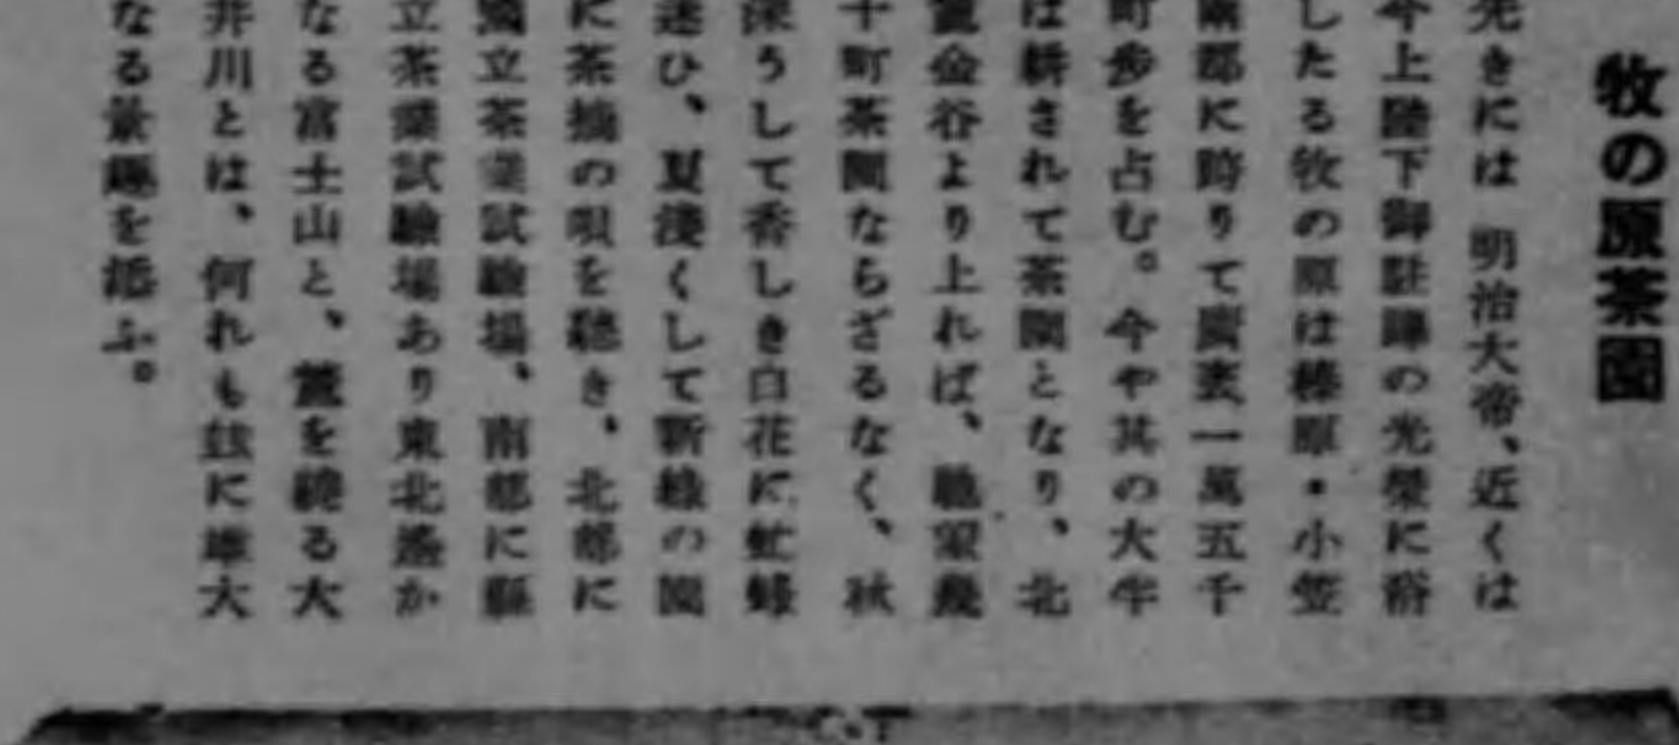 牧の原茶園
先きには 明治大帝、近くは
今上陛下御駐蹕の光榮に浴
したる牧の原は榛原・小笠
兩郡に跨りて廣袤一萬五千
町步を占む。今や其の大半
は耕されて茶園となり、北
金谷より上れば、眺望幾
十町茶園ならざるなく、秋
深うして香しき白花に虻蜂
迷ひ、夏淺くして新綠の園
に茶摘の唄を聽き、北部に
國立茶業試驗場、南部に縣
立茶業試驗場あり東北遙か
なる富士山と、麓を繞る大
井川とは、何れも玆に雄大
なる景趣を添ふ。